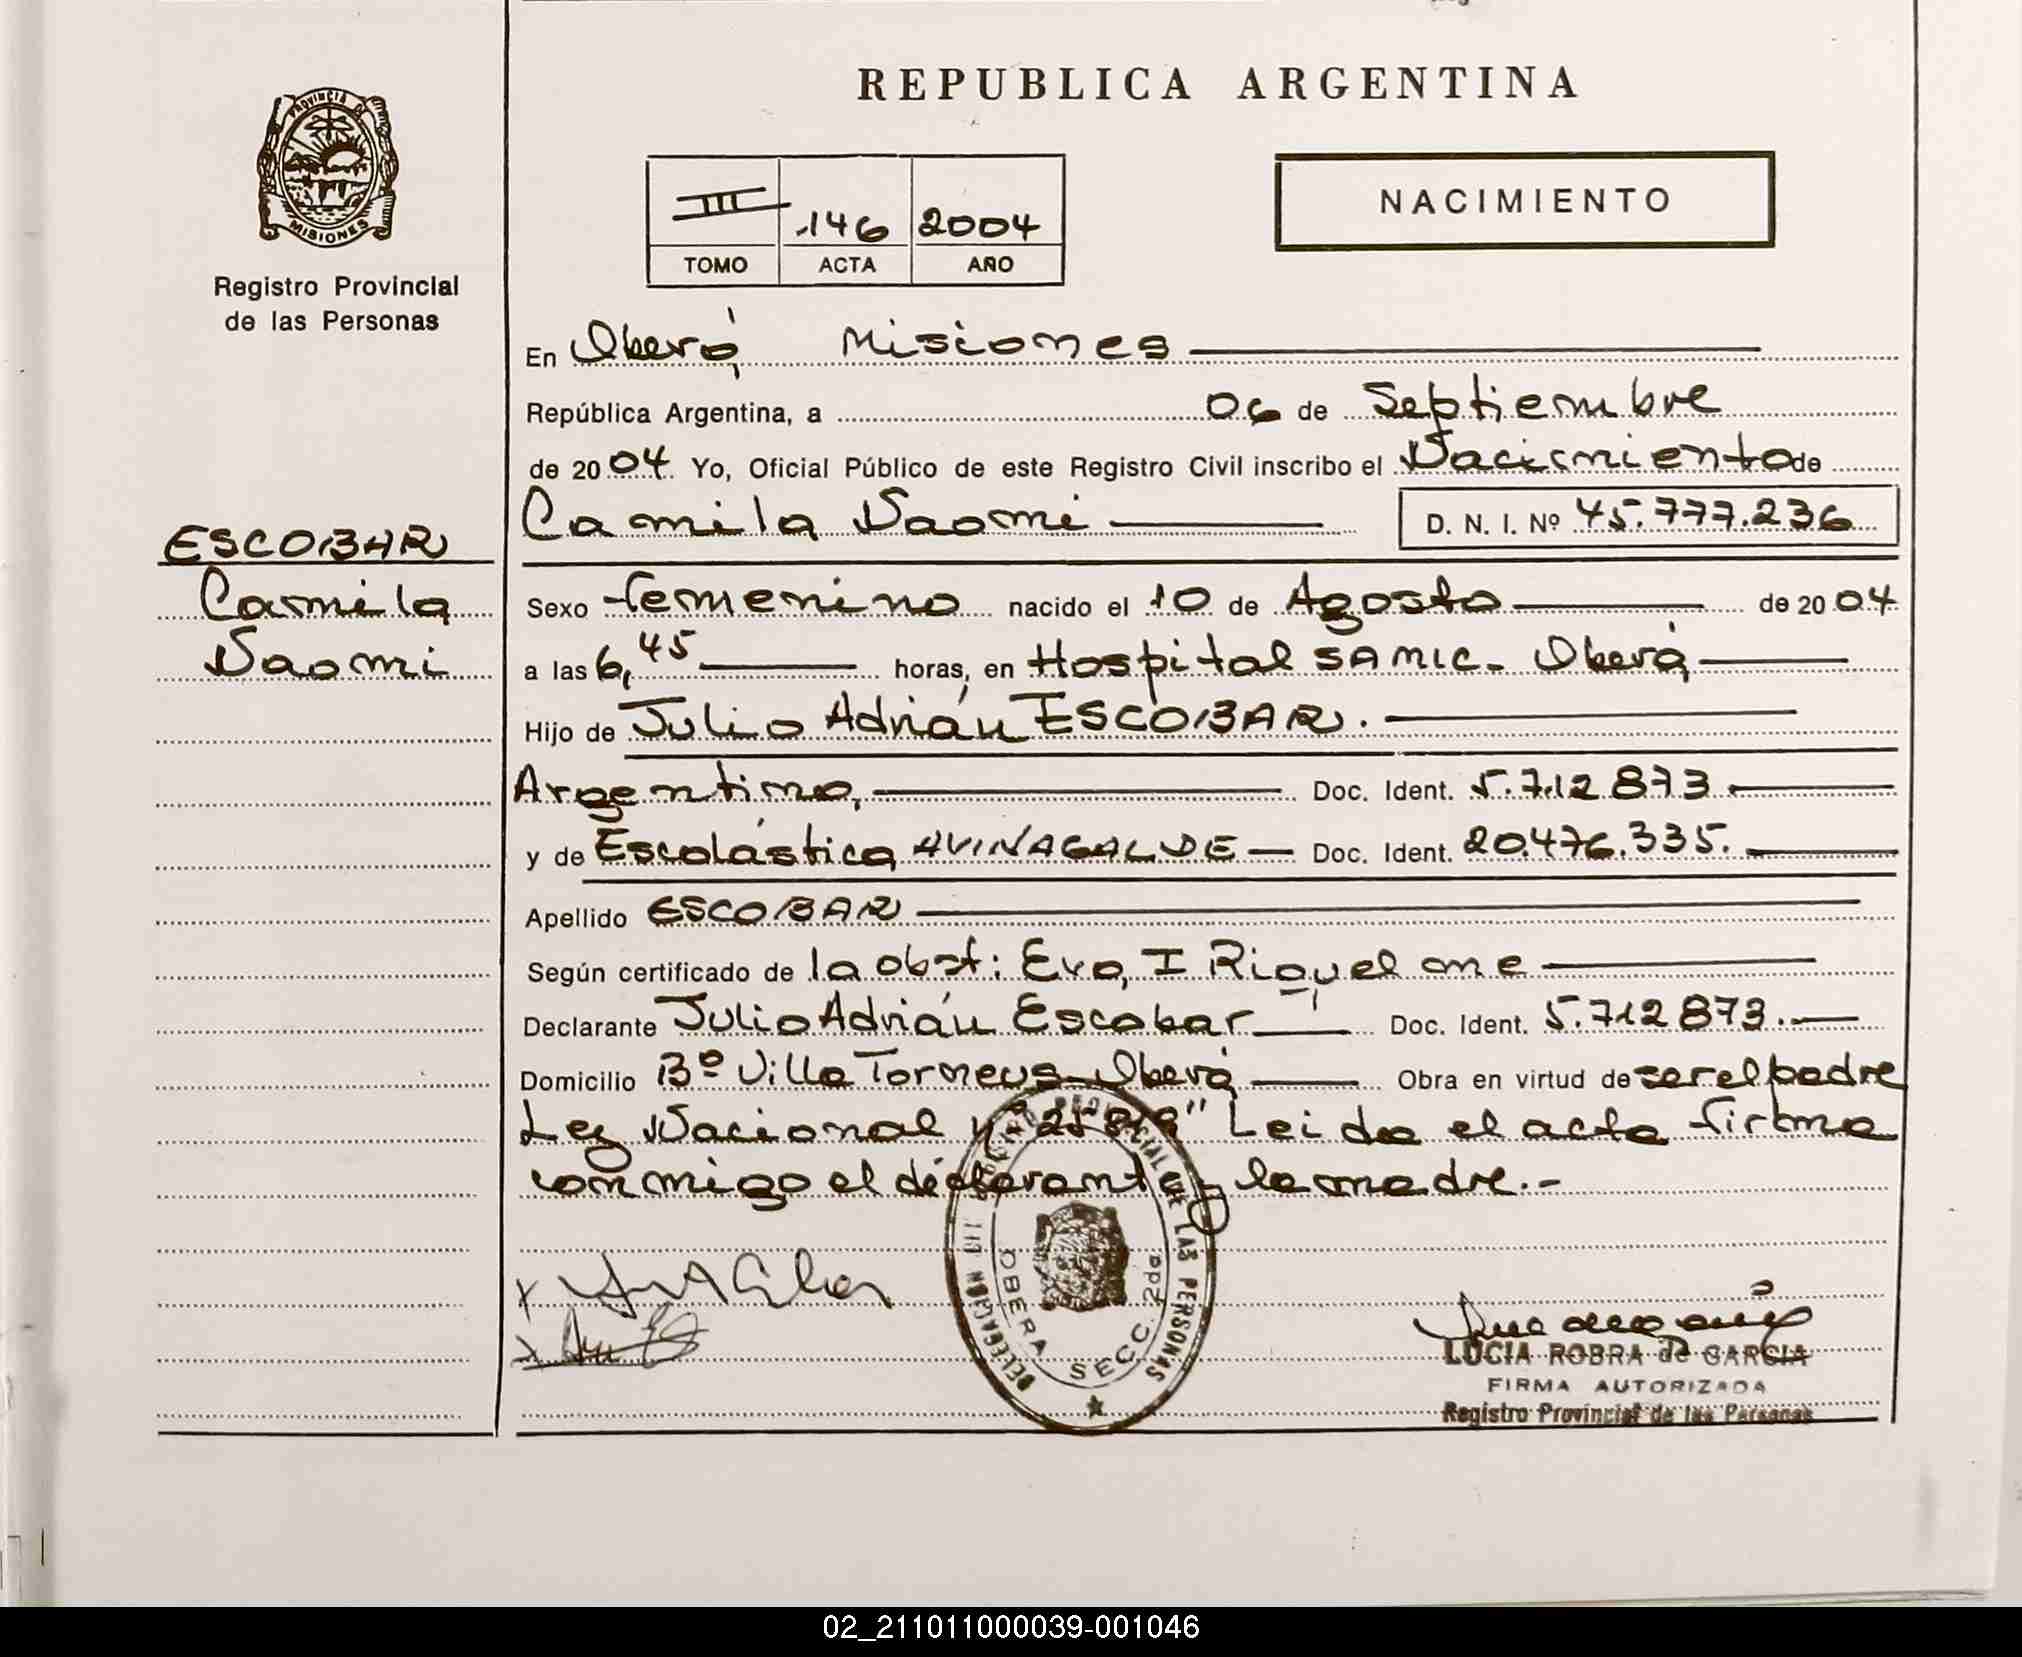 REPUBLICA ARGENTINA
PROVINCIA DE MISIONES
Registro Provincial
de las Personas
III 146 2004
TOMO ACTA AÑO
NACIMIENTO
En Oberá Misiones
República Argentina, a 06 de Septiembre
de 2004 Yo, Oficial Público de este Registro Civil inscribo el Nacimiento de
Camila Naomi D. N. I. Nº 45.777.236
ESCOBAR
Camila
Naomi
Sexo femenino nacido el 10 de Agosto de 2004
a las 6,45 horas, en Hospital SAMIC - Oberá
Hijo de Julio Adrián ESCOBAR.
Argentina, Doc. Ident. 5.712.873
y de Escolástica AVINAGALDE Doc. Ident. 20.476.335.
Apellido ESCOBAR
Según certificado de la obst: Eva, I Riquelme
Declarante Julio Adrián Escobar Doc. Ident. 5.712.873.-
Domicilio Bº Villa Torneus - Oberá Obra en virtud de ser el padre
Ley Nacional Leida el acta firma
conmigo el declarante y la madre.-
DELEGACION DEL REGISTRO PROVINCIAL DE LAS PERSONAS
OBERA SECC. 2da
LUCIA ROBRA de GARCIA
FIRMA AUTORIZADA
Registro Provincial de las Personas
02_211011000039-001046